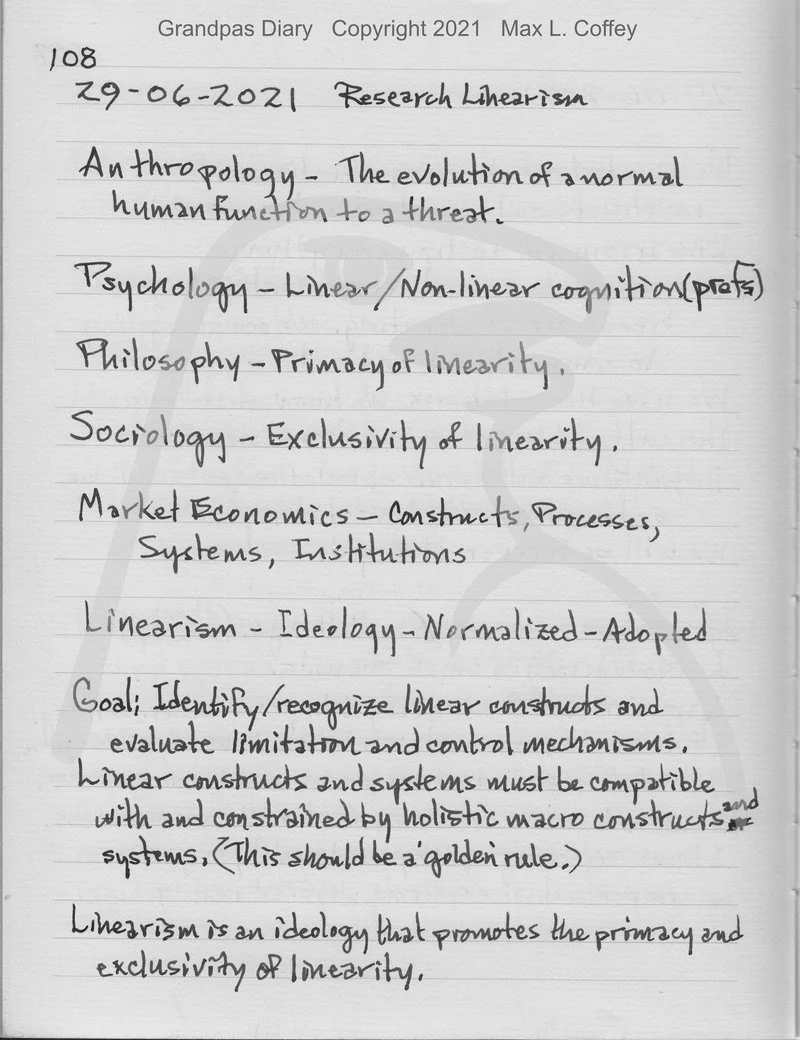 Grandpas Diary Copyright 2021 Max L. Coffey
108
29-06-2021 Research Linearism
Anthropology - The evolution of a normal
human function to a threat.
Psychology - Linear/Non-linear cognition (prefs)
Philosophy - Primacy of linearity.
Sociology - Exclusivity of linearity.
Market Economics - Constructs, Processes,
Systems, Institutions
Linearism - Ideology - Normalized - Adopted
Goal; Identify/recognize linear constructs and
evaluate limitation and control mechanisms.
Linear constructs and systems must be compatible
with and constrained by holistic macro constructs and
systems. (This should be a 'golden' rule.)
Linearism is an ideology that promotes the primacy and
exclusivity of linearity.